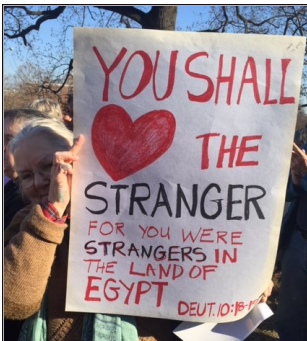 YOU SHALL
THE
STRANGER
FOR YOU WERE
STRANGERS IN
THE LAND OF
EGYPT
DEUT. 10:18-19